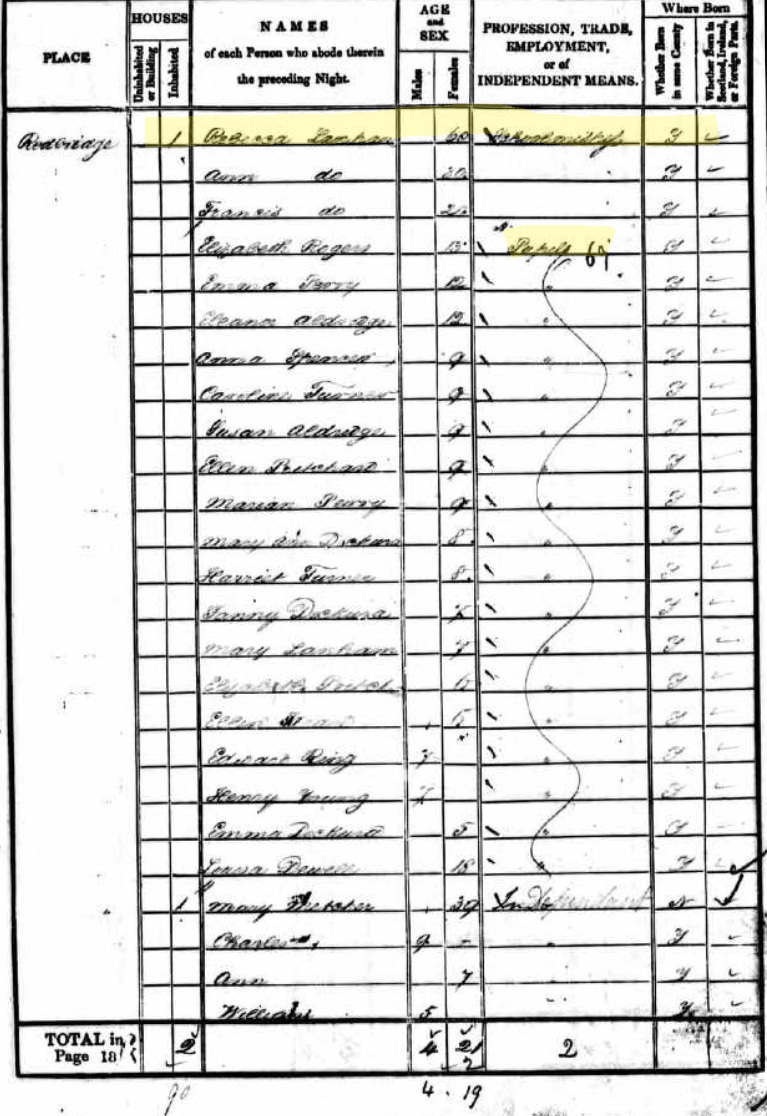 PLACE HOUSES Uninhabited or Building Inhabited NAMES of each Person who abode therein the preceding Night. AGE and SEX Males Females PROFESSION, TRADE, EMPLOYMENT, or of INDEPENDENT MEANS. Where Born Whether Born in same County Whether Born in Scotland, Ireland, or Foreign Parts.
Redbridge 1 Rebecca Lanham 60 Schoolmistress Y
Ann do 30 Y
Francis do 20 Y
Elizabeth Rogers 13 Pupils Y
Emma Perry 12 " Y
Eleanor Aldridge 12 " Y
Anna Spencer 9 " Y
Caroline Turner 9 " Y
Susan Aldridge 9 " Y
Ellen Pritchard 9 " Y
Marian Perry 9 " Y
Mary Ann 8 " Y
Harriet Turner 8 " Y
Fanny 7 " Y
Mary Lanham 7 " Y
Elizabeth 6 " Y
Ellen " Y
Edward Ring 7 " Y
Henry Young 7 " Y
Emma 5 " Y
Louisa Dewell 18 " Y
1 Mary 39 Independant N
Charles 9 Y
Ann 7 Y
William 5 Y
TOTAL in Page 18 2 4 21 2
90 4 . 19